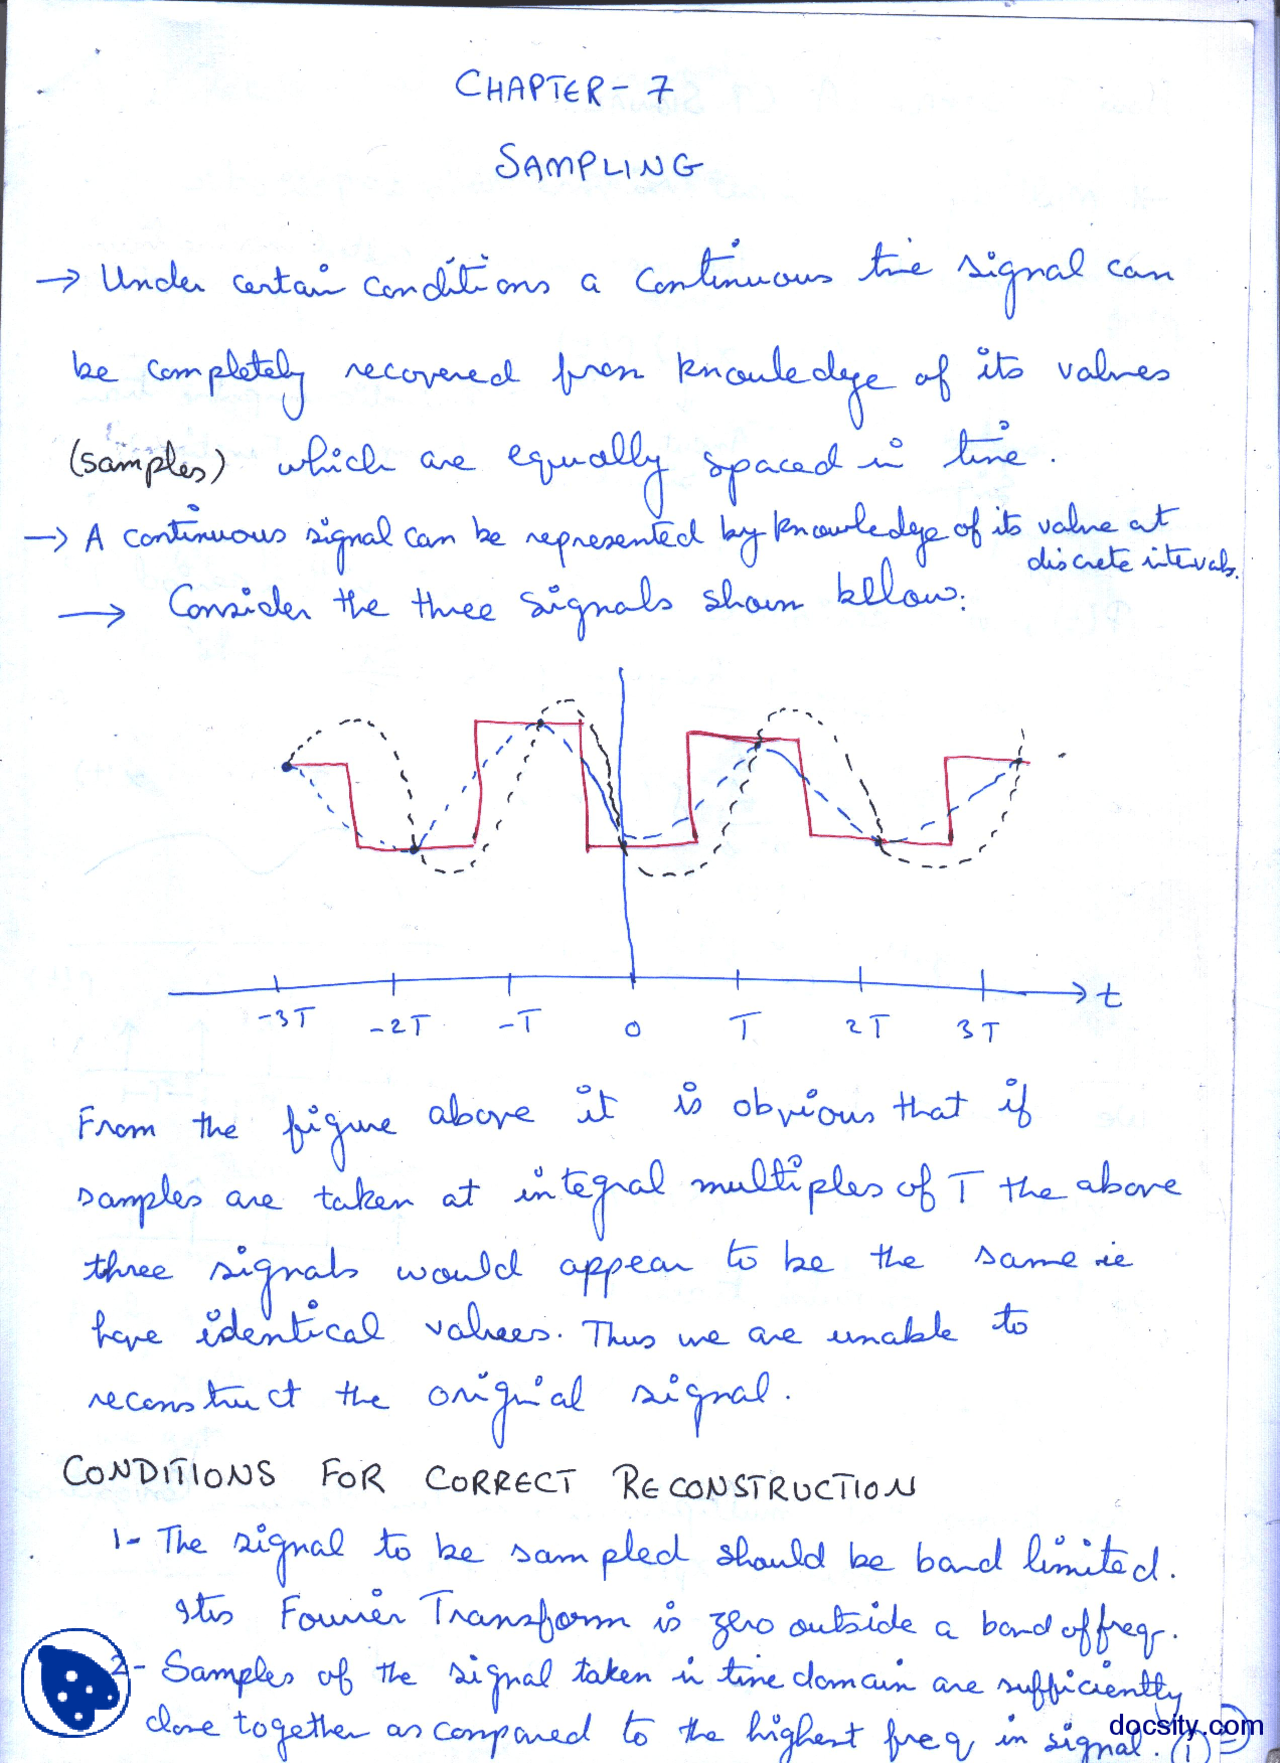 CHAPTER-7
SAMPLING
→ Under certain conditions a continuous time signal can
be completely recovered from knowledge of its values
(samples) which are equally spaced in time.
→ A continuous signal can be represented by knowledge of its value at
discrete intervals.
→ Consider the three signals shown bellow:
-3T -2T -T 0 T 2T 3T t
From the figure above it is obvious that if
samples are taken at integral multiples of T the above
three signals would appear to be the same ie
have identical values. Thus we are unable to
reconstruct the original signal.
CONDITIONS FOR CORRECT RECONSTRUCTION
1- The signal to be sampled should be band limited.
Its Fourier Transform is zero outside a band of freq.
2- Samples of the signal taken in time domain are sufficiently
close together as compared to the highest freq in signal. (1)
docsity.com